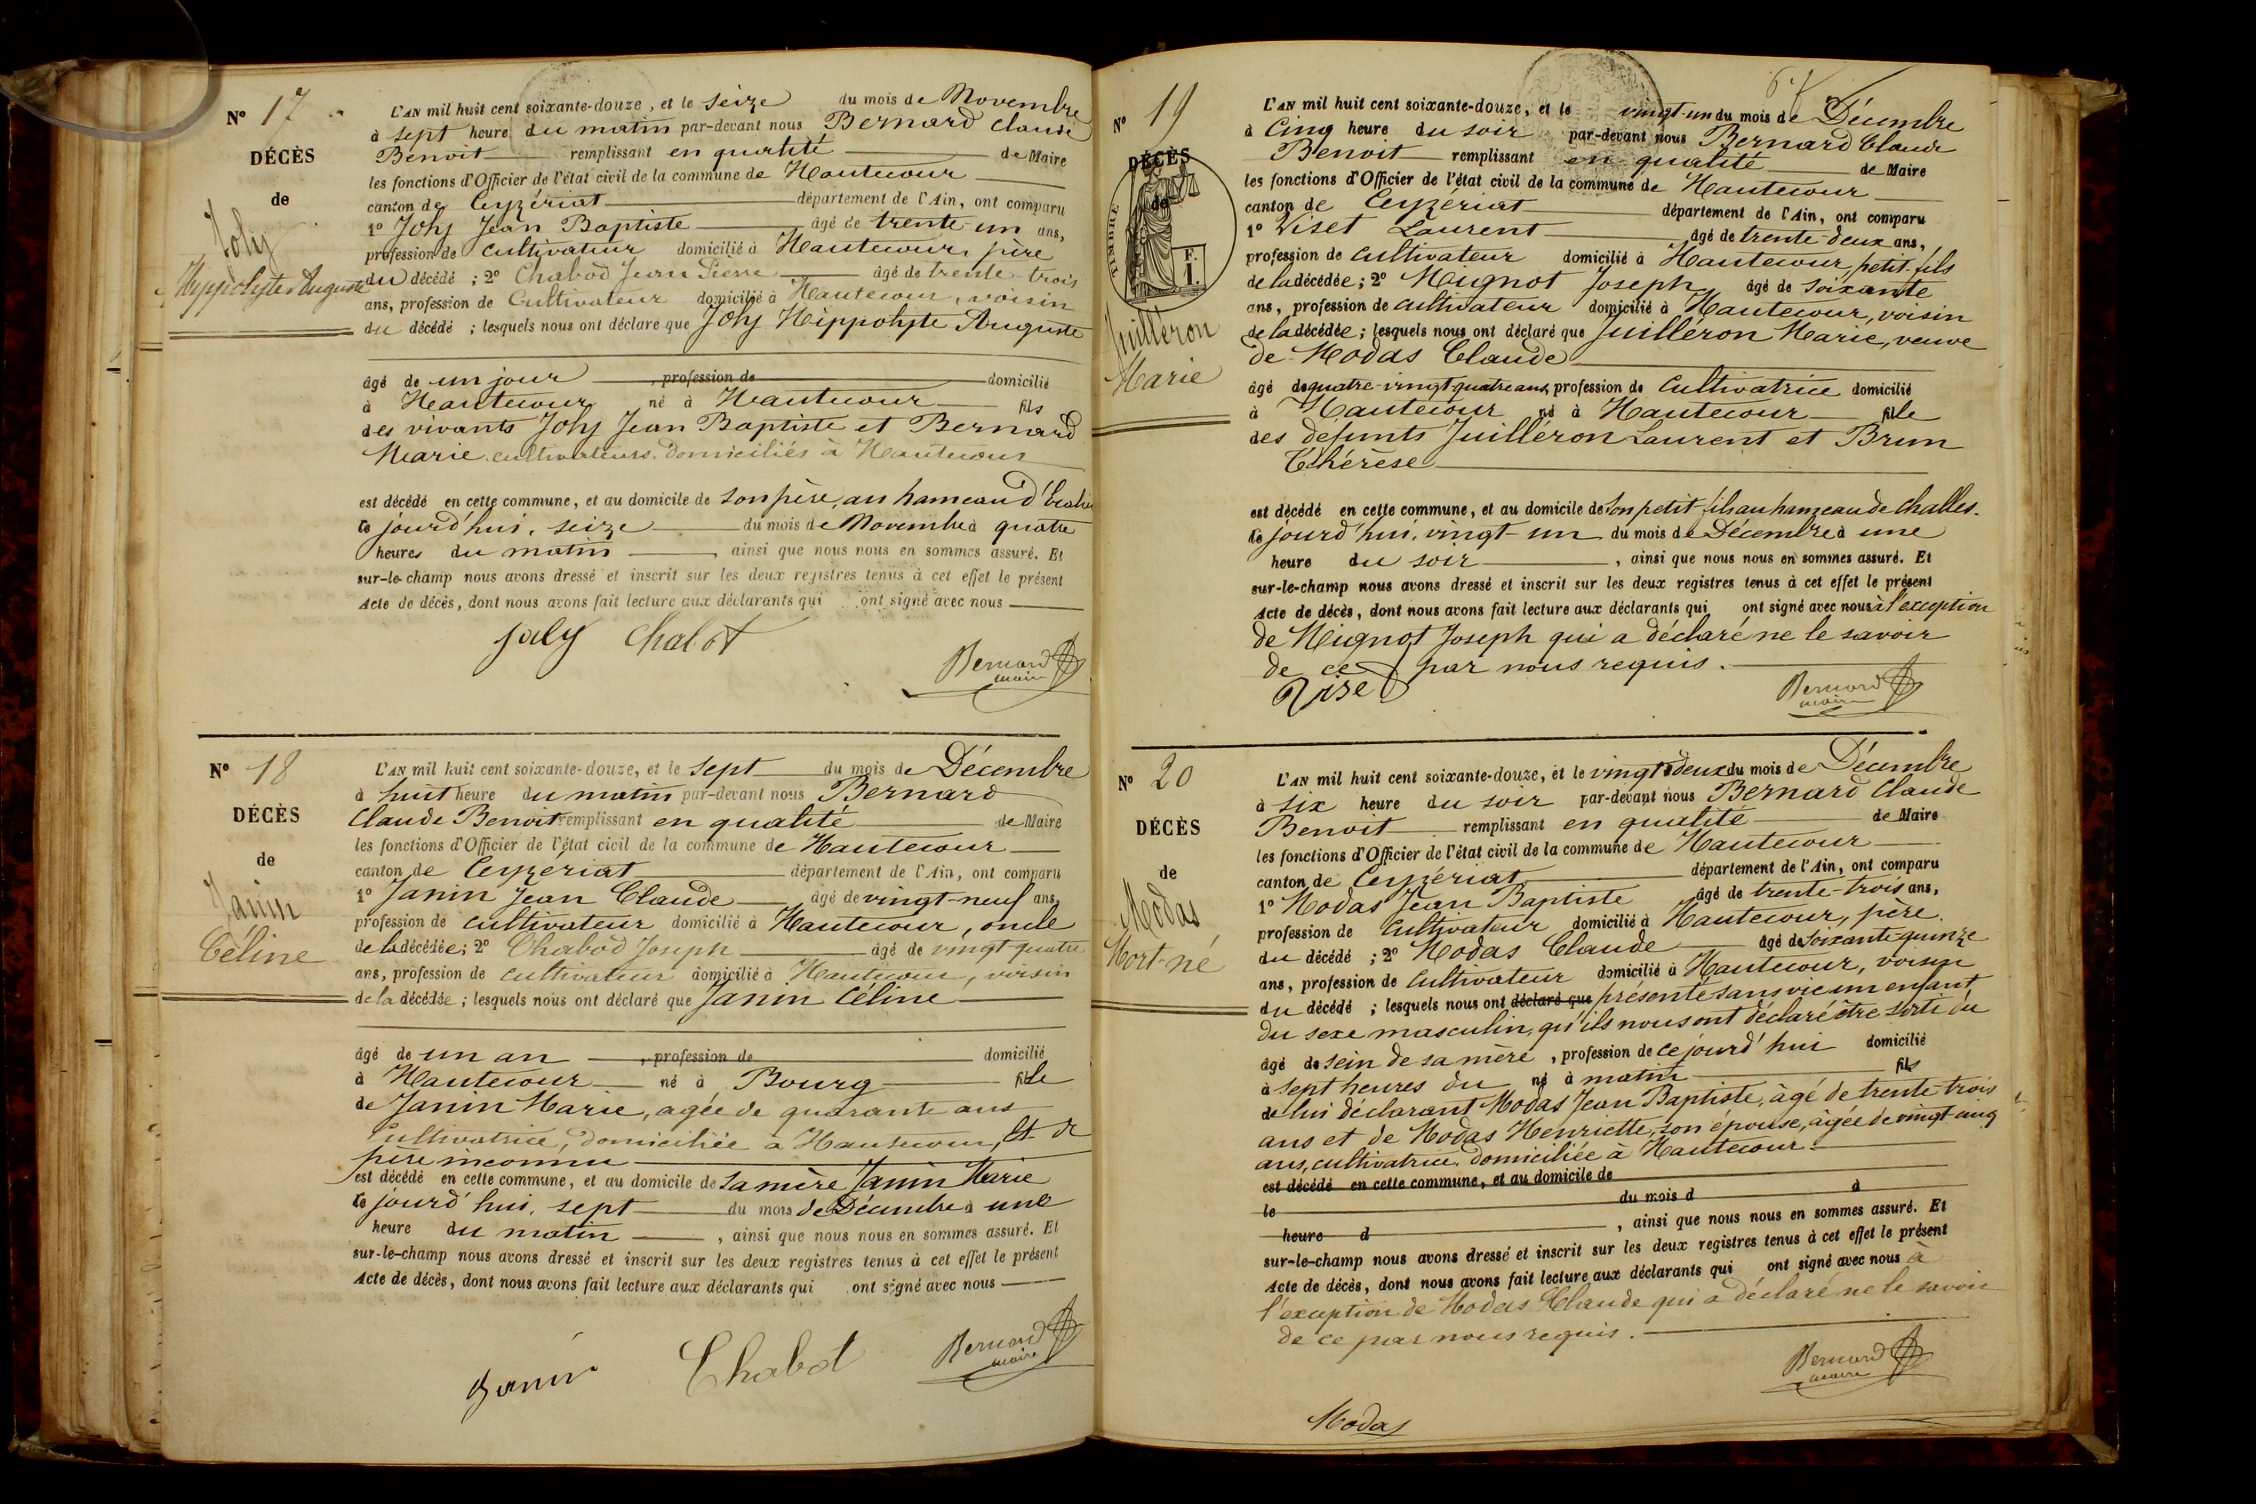 N° 17
DÉCÈS
de
Joly
Hyppolyte Auguste
L'AN mil huit cent soixante-douze, et le seize du mois de Novembre
à sept heure du matin par-devant nous Bernard Claude
Benoit remplissant en qualité de Maire
les fonctions d'Officier de l'état civil de la commune de Hautecour
canton de Ceyzériat département de l'Ain, ont comparu
1° Joly Jean Baptiste âgé de trente-un ans,
profession de cultivateur domicilié à Hautecour, père
du décédé ; 2° Chabod Jean Pierre âgé de trente-trois
ans, profession de Cultivateur domicilié à Hautecour, voisin
du décédé ; lesquels nous ont déclaré que Joly Hippolyte Auguste
âgé de un jour , profession de domicilié
à Hautecour né à Hautecour fils
des vivants Joly Jean Baptiste et Bernard
Marie cultivateurs domiciliés à Hautecour
est décédé en cette commune, et au domicile de son père, au hameau d'
le jourd'hui, seize du mois de Novembre à quatre
heures du matin , ainsi que nous nous en sommes assuré. Et
sur-le-champ nous avons dressé et inscrit sur les deux registres tenus à cet effet le présent
Acte de décès, dont nous avons fait lecture aux déclarants qui ont signé avec nous
Joly Chabot
Bernard
maire
N° 18
DÉCÈS
de
Janin
Céline
L'AN mil huit cent soixante-douze, et le sept du mois de Décembre
à huit heure du matin par-devant nous Bernard
Claude Benoit remplissant en qualité de Maire
les fonctions d'Officier de l'état civil de la commune de Hautecour
canton de Ceyzériat département de l'Ain, ont comparu
1° Janin Jean Claude âgé de vingt-neuf ans,
profession de cultivateur domicilié à Hautecour, oncle
de la décédée ; 2° Chabod Joseph âgé de vingt-quatre
ans, profession de cultivateur domicilié à Hautecour, voisin
de la décédée ; lesquels nous ont déclaré que Janin Céline
âgé de un an , profession de domicilié
à Hautecour né à Bourg fille
de Janin Marie, agée de quarante ans
Cultivatrice, domiciliée à Hautecour, et de
père inconnu
est décédé en cette commune, et au domicile de sa mère Janin Marie
le jourd'hui, sept du mois de Décembre à une
heure du matin , ainsi que nous nous en sommes assuré. Et
sur-le-champ nous avons dressé et inscrit sur les deux registres tenus à cet effet le présent
Acte de décès, dont nous avons fait lecture aux déclarants qui ont signé avec nous
Janin Chabot
Bernard
maire
6
N° 19
DÉCÈS
de
TIMBRE
F.
1.
Juilléron
Marie
L'AN mil huit cent soixante-douze, et le vingt-un du mois de Décembre
à Cinq heure du soir par-devant nous Bernard Claude
Benoit remplissant en qualité de Maire
les fonctions d'Officier de l'état civil de la commune de Hautecour
canton de Ceyzériat département de l'Ain, ont comparu
1° Viset Laurent âgé de trente-deux ans,
profession de cultivateur domicilié à Hautecour, petit-fils
de la décédée ; 2° Meignot Joseph âgé de soixante
ans, profession de cultivateur domicilié à Hautecour, voisin
de la décédée ; lesquels nous ont déclaré que Juilléron Marie, veuve
de Modas Claude
âgé de quatre-vingt-quatre ans, profession de Cultivatrice domicilié
à Hautecour né à Hautecour fille
des défunts Juilléron Laurent et Brun
Thérèse
est décédé en cette commune, et au domicile de son petit-fils au hameau de Challes.
le jourd'hui, vingt-un du mois de Décembre à une
heure du soir , ainsi que nous nous en sommes assuré. Et
sur-le-champ nous avons dressé et inscrit sur les deux registres tenus à cet effet le présent
Acte de décès, dont nous avons fait lecture aux déclarants qui ont signé avec nous à l'exception
de Meignot Joseph qui a déclaré ne le savoir
de ce par nous requis.
Viset
Bernard
maire
N° 20
DÉCÈS
de
Modas
Mort-né
L'AN mil huit cent soixante-douze, et le vingt-deux du mois de Décembre
à six heure du soir par-devant nous Bernard Claude
Benoit remplissant en qualité de Maire
les fonctions d'Officier de l'état civil de la commune de Hautecour
canton de Ceyzériat département de l'Ain, ont comparu
1° Modas Jean Baptiste âgé de trente-trois ans,
profession de Cultivateur domicilié à Hautecour, père
du décédé ; 2° Modas Claude âgé de soixante-quinze
ans, profession de Cultivateur domicilié à Hautecour, voisin
du décédé ; lesquels nous ont déclaré que présenté sans vie un enfant
du sexe masculin, qu'ils nous ont déclaré être sorti du
âgé de sein de sa mère , profession de ce jourd'hui domicilié
à sept heures du né à matin fils
de lui déclarant Modas Jean Baptiste, âgé de trente-trois
ans et de Modas Henriette, son épouse, âgée de vingt-cinq
ans, cultivatrice, domiciliée à Hautecour.
est décédé en cette commune, et au domicile de
le du mois d à
heure d , ainsi que nous nous en sommes assuré. Et
sur-le-champ nous avons dressé et inscrit sur les deux registres tenus à cet effet le présent
Acte de décès, dont nous avons fait lecture aux déclarants qui ont signé avec nous à
l'exception de Modas Claude qui a déclaré ne le savoir
de ce par nous requis.
Bernard
maire
Modas